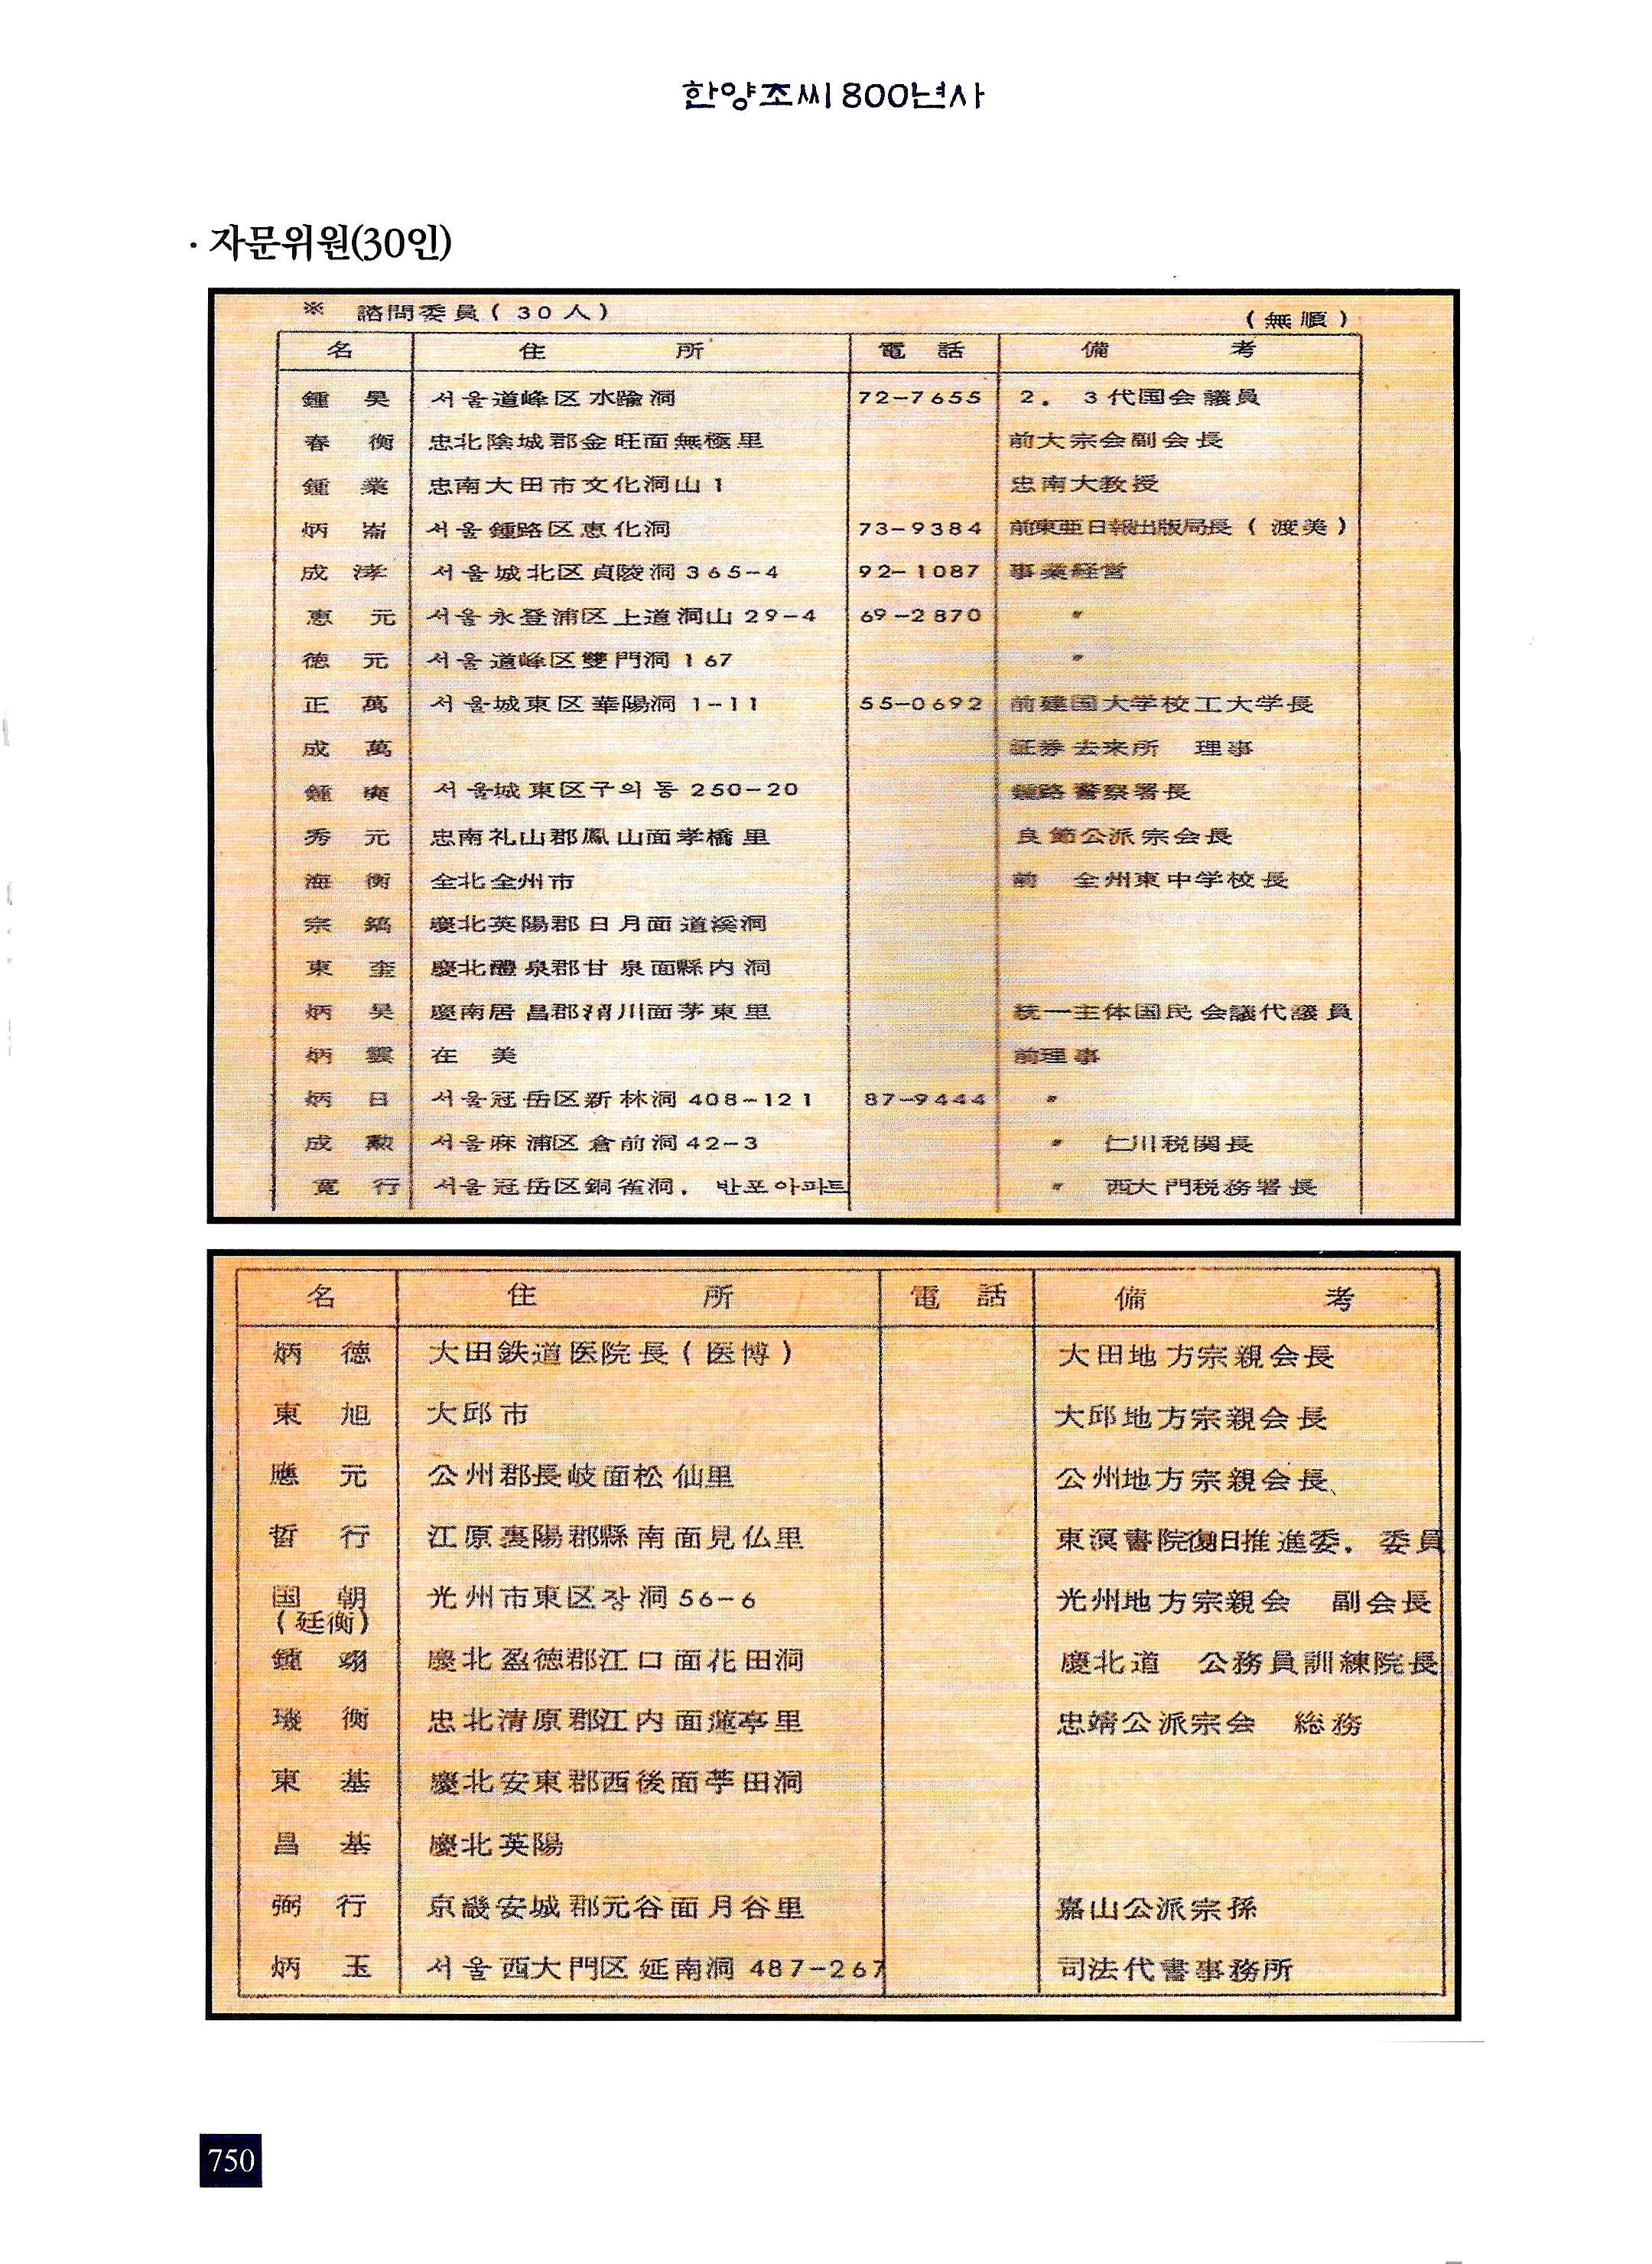 한양조씨800년사
· 자문위원(30인)
※ 諮問委員(30人) (無順)
名 住 所 電 話 備 考
鍾 昊 서울道峰区水踰洞 72-7655 2. 3代国会議員
春 衡 忠北陰城郡金旺面無極里 前大宗会副会長
鍾 業 忠南大田市文化洞山1 忠南大教授
炳 崙 서울鍾路区恵化洞 73-9384 前東亜日報出版局長(渡美)
成 涍 서울城北区貞陵洞365-4 92-1087 事業経営
惠 元 서울永登浦区上道洞山29-4 69-2870 〃
徳 元 서울道峰区雙門洞167 〃
正 萬 서울城東区華陽洞1-11 55-0692 前建国大学校工大学長
成 萬 証券去来所 理事
鍾 奭 서울城東区구의동250-20 鍾路警察署長
秀 元 忠南礼山郡鳳山面孝橋里 良節公派宗会長
海 衡 全北全州市 前 全州東中学校長
宗 鎬 慶北英陽郡日月面道溪洞
東 奎 慶北醴泉郡甘泉面縣内洞
炳 昊 慶南居昌郡渭川面茅東里 統一主体国民会議代議員
炳 雲 在 美 前理事
炳 日 서울冠岳区新林洞408-121 87-9444 〃
成 勲 서울麻浦区倉前洞42-3 〃 仁川税関長
寛 行 서울冠岳区銅雀洞. 반포아파트 〃 西大門税務署長
名 住 所 電 話 備 考
炳 徳 大田鉄道医院長(医博) 大田地方宗親会長
東 旭 大邱市 大邱地方宗親会長
應 元 公州郡長岐面松仙里 公州地方宗親会長
哲 行 江原襄陽郡縣南面見仏里 東溟書院復旧推進委. 委員
国 朝 光州市東区장洞56-6 光州地方宗親会 副会長
(廷衡)
鍾 翊 慶北盈徳郡江口面花田洞 慶北道 公務員訓練院長
璣 衡 忠北清原郡江内面蓮亭里 忠靖公派宗会 総務
東 基 慶北安東郡西後面苧田洞
昌 基 慶北英陽
弼 行 京畿安城郡元谷面月谷里 嘉山公派宗孫
炳 玉 서울西大門区延南洞487-267 司法代書事務所
750